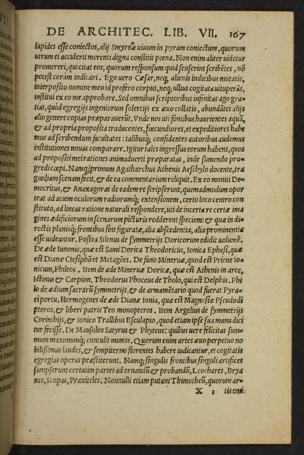 DE ARCHITEC. LIB. VII. 167
lapides esse coniectos, alij Smyrnæ uiuum in pyram coniectum, quorum
utrum ei acciderit merenti digna constitit pœna. Non enim aliter uidetur
promereri, qui citat eos, quorum responsum quid senserint scribẽtes, nõ
potest coràm indicari. Ego uero Cæsar, neq; alienis indicibus mutatis,
interposito nomine meo id profero corpus, neq; ullius cogitata uituperãs,
institui ex eo me approbare. Sed omnibus scriptoribus infinitas ago gra-
tias, quòd egregijs ingeniorum solertijs ex æuo collatis, abundãtes alijs
alio genere copias præparauerũt. Vnde nos uti fontibus haurientes aquã,
& ad propria proposita traducentes, fœcundiores, et expeditiores habe
mus ad scribendum facultates: talibusq́; confidentes autoribus audemus
institutiones nouas comparare. Igitur tales ingressus eorum habens, quos
ad propositi mei rationes animaduerti præparatas, inde sumendo pro-
gredi cœpi. Namq; primum Agatharchus Athenis Aeschylo docente, tra
gœdiam scenam fecit, & de ea commentarium reliquit. Ex eo moniti De-
mocritus, & Anaxagoras de eadem re scripserunt, quemadmodum opor
teat ad aciem oculorum radiorumq; extensionem, certo loco centro con
stituto, ad lineas ratione naturali respondere, uti de incerta re certæ ima
gines ædificiorum in scenarum picturis redderent speciem: & quæ in di
rectis planisq; frontibus sint figuratæ, alia abscedentia, alia prominentia
esse uideantur. Postea Silenus de symmetrijs Doricorum edidit uolumẽ.
De æde Iunonis, quæ est Sami Dorica Theodorus, ionica Ephesi, quæ
est Dianæ Ctesiphõ et Metagẽes. De fano Mineruæ, quod est Priene Io-
nicum, Phileos. Item de æde Mineruæ Dorica, quæ est Athenis in arce,
Ictinus & Carpion, Theodorus Phoceus de Tholo, qui est Delphis. Phi
lo de ædium sacrarũ symmetrijs, & de armamẽtario quod fuerat Pyræi
ei portu, Hermogenes de æde Dianæ Ionia, quæ est Magnesiæ Pseudodi
pteros, & liberi patris Teo monopteros. Item Argelius de symmetrijs
Corinthijs, & ionico Trallibus Esculapio, quod etiam ipse sua manu dici
tur fecisse. De Mausoleo Satyrus & Phyteus: quibus uere felicitas sum-
mum maximumq́; contulit munus. Quorum enim artes æuo perpetuo no
bilissimas laudes, & sempiterno florentes habere iudicantur, et cogitatis
egregias operas præstiterunt. Namq; singulis frontibus singuli artifices
sumpserunt certatim partes ad ornandũ & probandũ, Leochares, Bryá
xes, Scopas, Praxiteles. Nonnulli etiam putant Thimotheũ, quorum ar-
X 3 tis emi